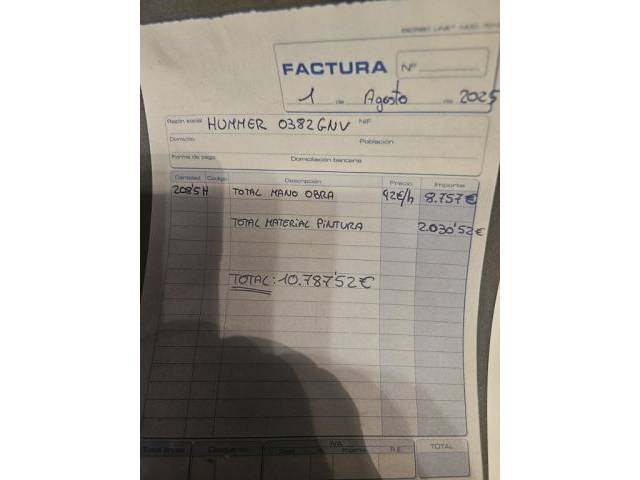 FACTURA Nº
1 de Agosto de 2025
Razón social HUMMER 0382GNV NIF
Domicilio Población
Forma de pago Domiciliación bancaria
Cantidad Código Descripción Precio Importe
208'5H TOTAL MANO OBRA 42€/h 8.757€
TOTAL MATERIAL PINTURA 2.030'52€
TOTAL: 10.787'52€
IVA
Descuento Importe R.E. TOTAL